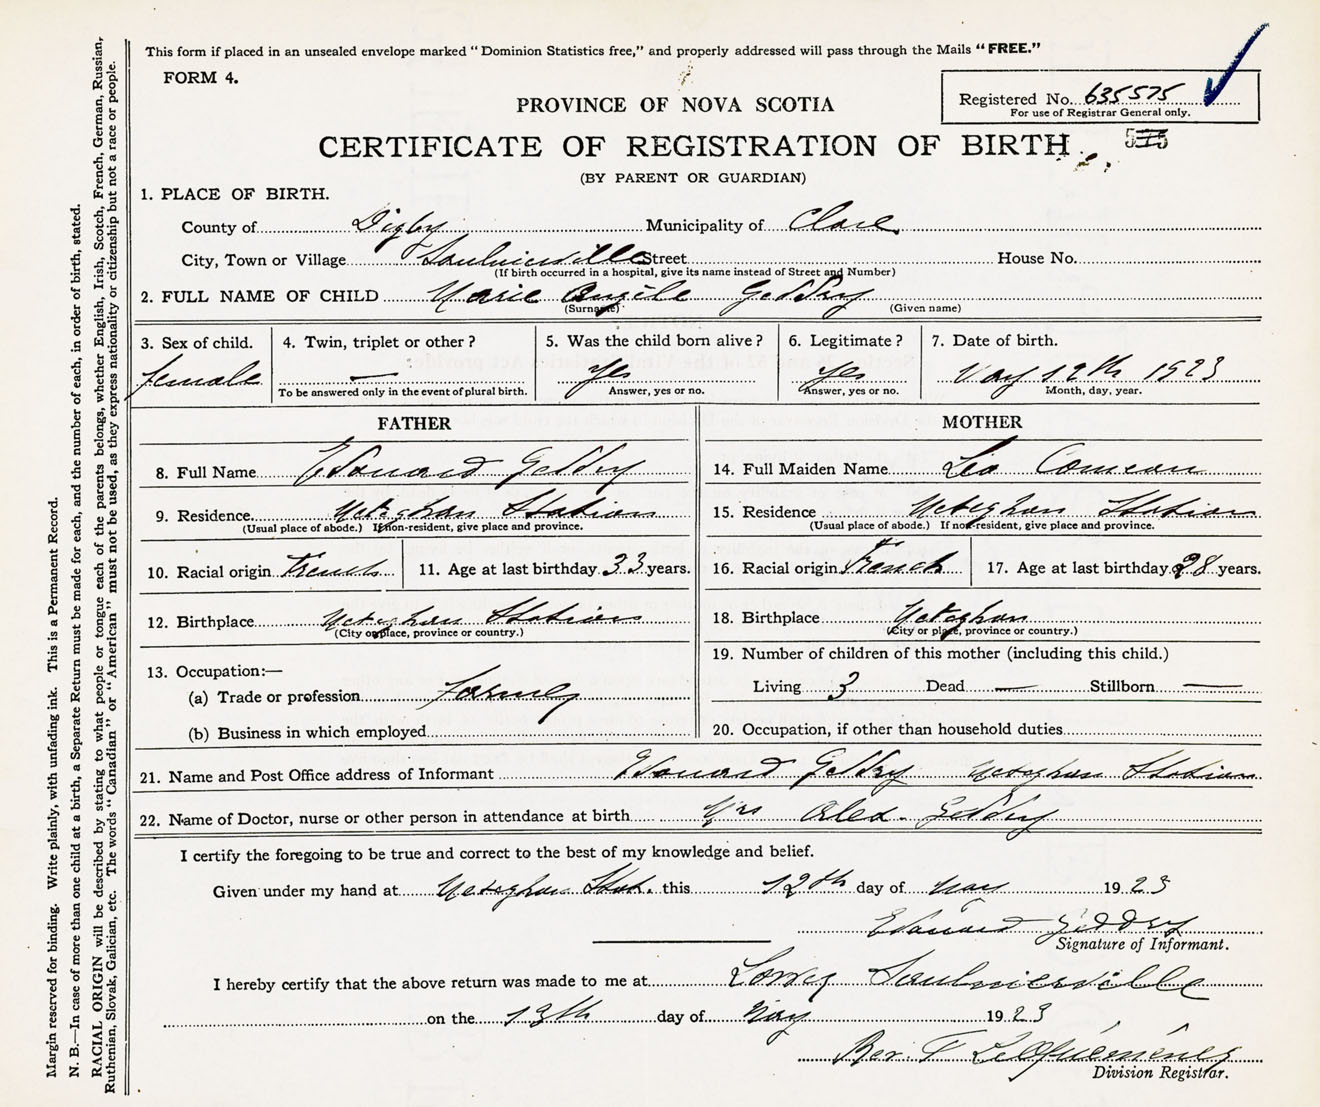 This form if placed in an unsealed envelope marked "Dominion Statistics free," and properly addressed will pass through the Mails "FREE."
FORM 4.
Registered No. 635575
For use of Registrar General only.
PROVINCE OF NOVA SCOTIA
CERTIFICATE OF REGISTRATION OF BIRTH
(BY PARENT OR GUARDIAN)
1. PLACE OF BIRTH.
County of Digby Municipality of Clare
City, Town or Village Saulnierville Street House No.
(If birth occurred in a hospital, give its name instead of Street and Number)
2. FULL NAME OF CHILD Marie Angèle Geddry
(Surname) (Given name)
3. Sex of child. 4. Twin, triplet or other? 5. Was the child born alive? 6. Legitimate? 7. Date of birth.
female — Yes Yes May 12th 1923
To be answered only in the event of plural birth. Answer, yes or no. Answer, yes or no. Month, day, year.
FATHER
8. Full Name Edouard Geddry
9. Residence Meteghan Station
(Usual place of abode.) If non-resident, give place and province.
10. Racial origin French 11. Age at last birthday 33 years.
12. Birthplace Meteghan Station
(City or place, province or country.)
13. Occupation:—
(a) Trade or profession Farmer
(b) Business in which employed
MOTHER
14. Full Maiden Name Léa Comeau
15. Residence Meteghan Station
(Usual place of abode.) If non-resident, give place and province.
16. Racial origin French 17. Age at last birthday 28 years.
18. Birthplace Meteghan
(City or place, province or country.)
19. Number of children of this mother (including this child.)
Living 3 Dead — Stillborn —
20. Occupation, if other than household duties
21. Name and Post Office address of Informant Edouard Geddry Meteghan Station
22. Name of Doctor, nurse or other person in attendance at birth Mrs Alex. Geddry
I certify the foregoing to be true and correct to the best of my knowledge and belief.
Given under my hand at Meteghan Stat. this 12th day of May 1923
Edouard Geddry
Signature of Informant.
I hereby certify that the above return was made to me at Lower Saulnierville
on the 13th day of May 1923
Rev. T
Division Registrar.
Margin reserved for binding. Write plainly, with unfading ink. This is a Permanent Record.
N. B.—In case of more than one child at a birth, a Separate Return must be made for each, and the number of each, in order of birth, stated.
RACIAL ORIGIN will be described by stating to what people or tongue each of the parents belongs, whether English, Irish, Scotch, French, German, Russian,
Ruthenian, Slovak, Galician, etc. The words "Canadian" or "American" must not be used, as they express nationality or citizenship but not a race or people.